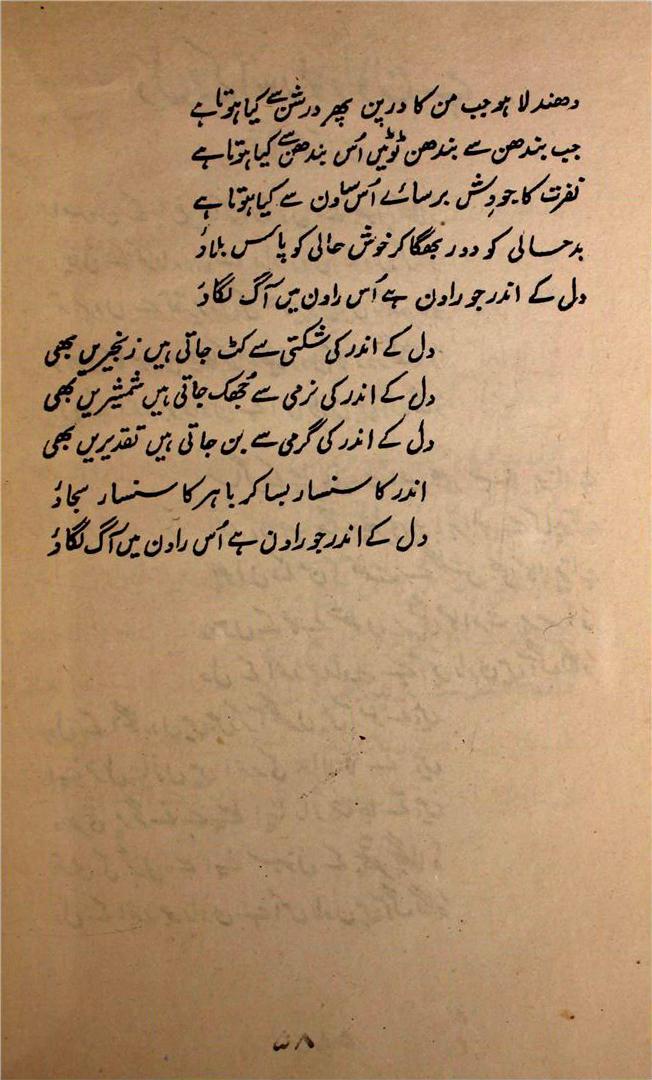 دھندلا ہو جب من کا درپن پھر درشن سے کیا ہوتا ہے
جب بندھن سے بندھن ٹوٹیں اُس بندھن سے کیا ہوتا ہے
نفرت کا جو وِش برسائے اُس ساون سے کیا ہوتا ہے
بدحالی کو دور بھگا کر خوش حالی کو پاس بلاؤ
دل کے اندر جو راون ہے اُس راون میں آگ لگاؤ
دل کے اندر کی شکتی سے کٹ جاتی ہیں زنجیریں بھی
دل کے اندر کی نرمی سے جُھک جاتی ہیں شمشیریں بھی
دل کے اندر کی گرمی سے بن جاتی ہیں تقدیریں بھی
اندر کا سنسار بسا کر باہر کا سنسار سجاؤ
دل کے اندر جو راون ہے اُس راون میں آگ لگاؤ
۵۸